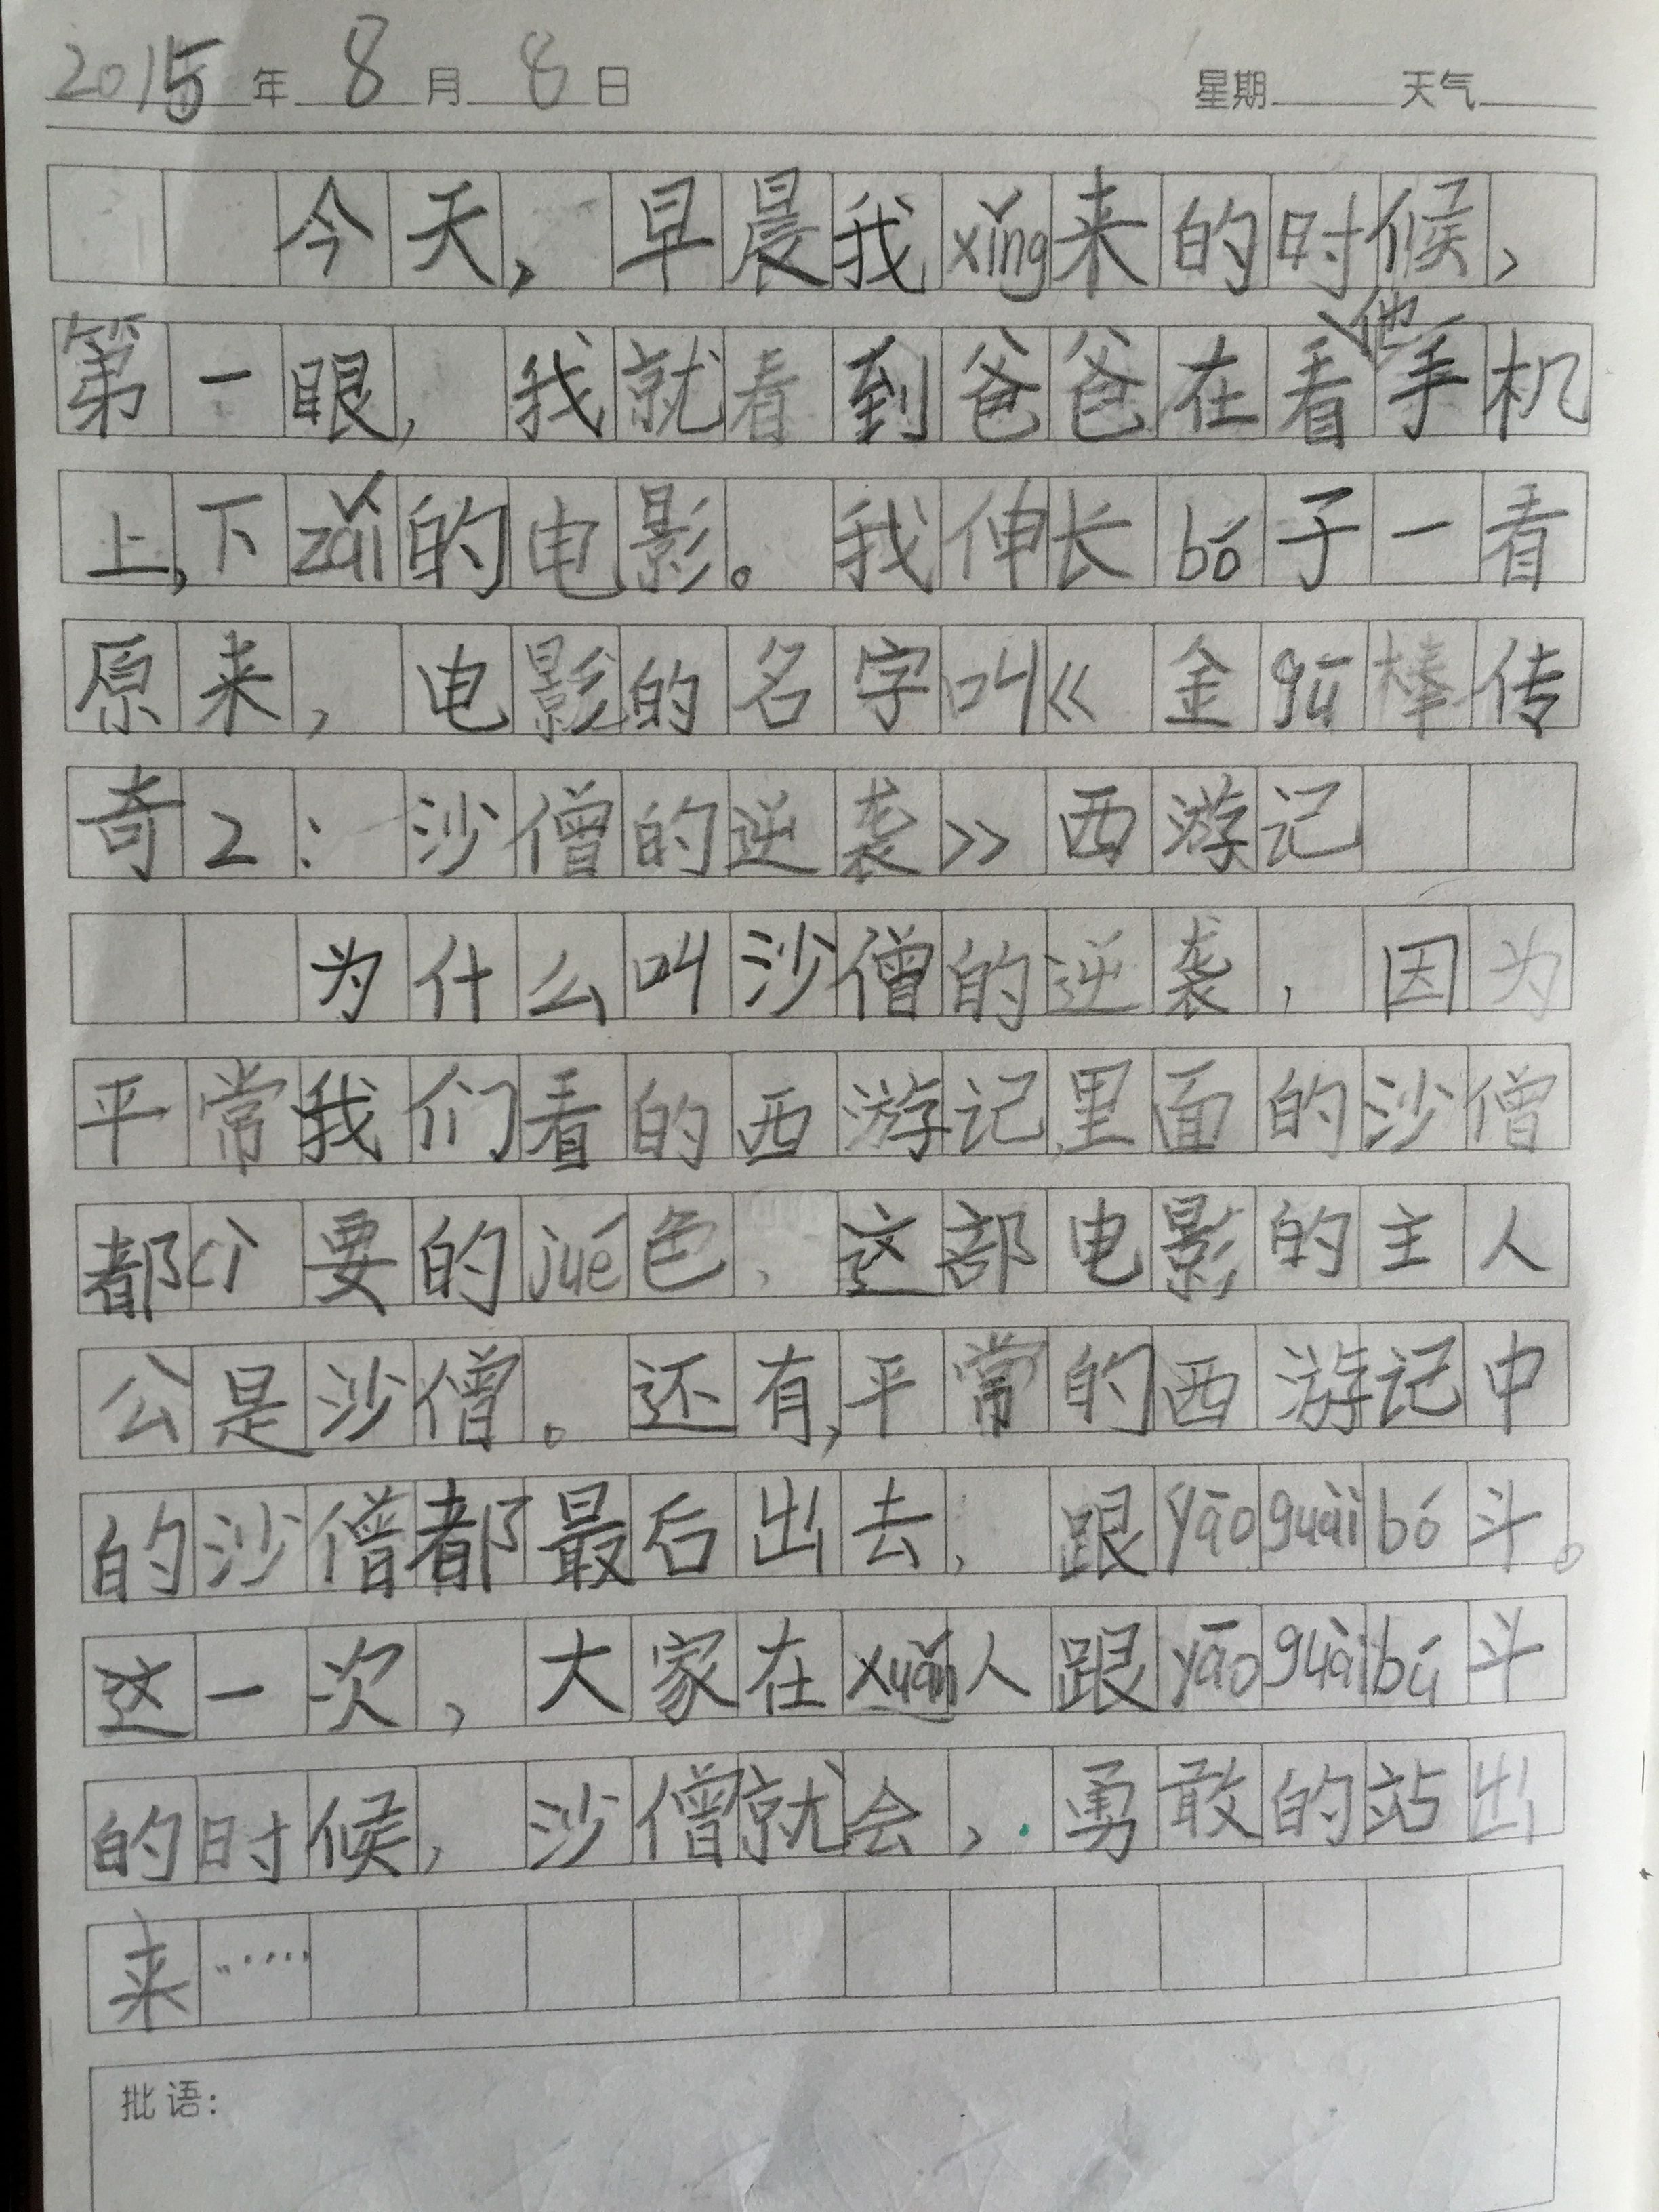 2015年8月8日 星期 天气
今天，早晨我xǐng来的时候，
第一眼，我就看到爸爸在看他手机
上，下zǎi的电影。我伸长bó子一看
原来，电影的名字叫《金gū棒传
奇2：沙僧的逆袭》西游记
为什么叫沙僧的逆袭，因为
平常我们看的西游记里面的沙僧
都cì要的jué色，这部电影的主人
公是沙僧。还有，平常的西游记中
的沙僧都最后出去，跟yāoguàibó斗。
这一次，大家在xuǎn人跟yāoguàibú斗
的时候，沙僧就会，勇敢的站出
来……
批语：